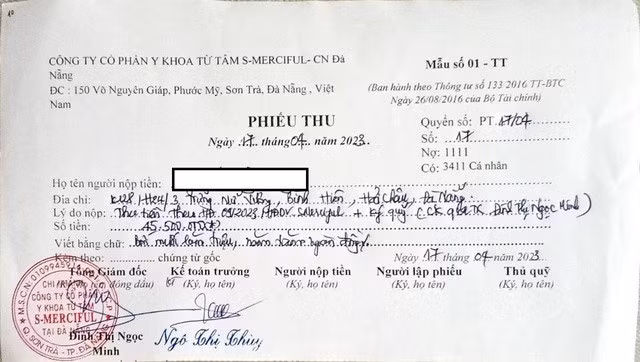 CÔNG TY CỔ PHẦN Y KHOA TỪ TÂM S-MERCIFUL- CN Đà Nẵng
ĐC : 150 Võ Nguyên Giáp, Phước Mỹ, Sơn Trà, Đà Nẵng , Việt Nam
Mẫu số 01 - TT
(Ban hành theo Thông tư số 133 2016 TT-BTC
Ngày 26/08/2016 của Bộ Tài chính)
PHIẾU THU
Ngày 17 tháng 04 năm 2023
Quyển số: PT 17/04
Số: 17
Nợ: 1111
Có: 3411 Cá nhân
Họ tên người nộp tiền:
Địa chỉ: Trưng Nữ Vương, Bình Hiên, Hải Châu, Đà Nẵng
Lý do nộp: Thu tiền theo HĐ Salmerciful + ký quỹ (CK qua TK Đinh Thị Ngọc Minh)
Số tiền: 45.500.000đ
Viết bằng chữ: bốn mươi lăm triệu, năm trăm ngàn đồng
Kèm theo: chứng từ gốc
Ngày 17 tháng 04 năm 2023
Tổng Giám đốc Kế toán trưởng Người nộp tiền Người lập phiếu Thủ quỹ
(Ký, họ tên, đóng dấu) (Ký, họ tên) (Ký, họ tên) (Ký, họ tên) (Ký, họ tên)
CÔNG TY CỔ PHẦN
Y KHOA TỪ TÂM
S-MERCIFUL
TẠI ĐÀ NẴNG
Q. SƠN TRÀ - TP. ĐÀ
Đinh Thị Ngọc Minh
Ngô Thị Thuỳ